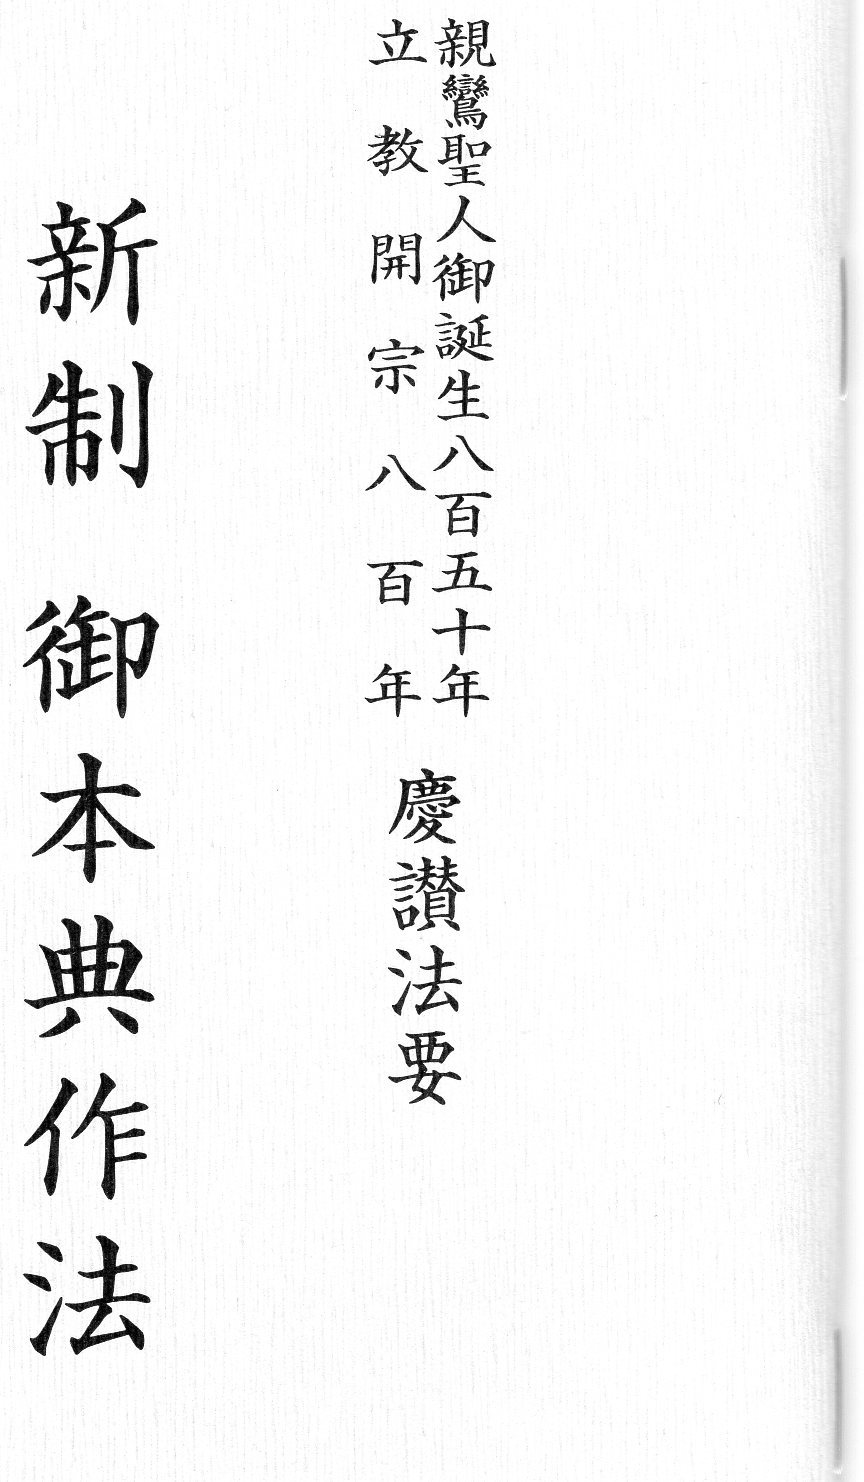 親鸞聖人御誕生八百五十年
立教開宗八百年
慶讃法要
新制 御本典作法